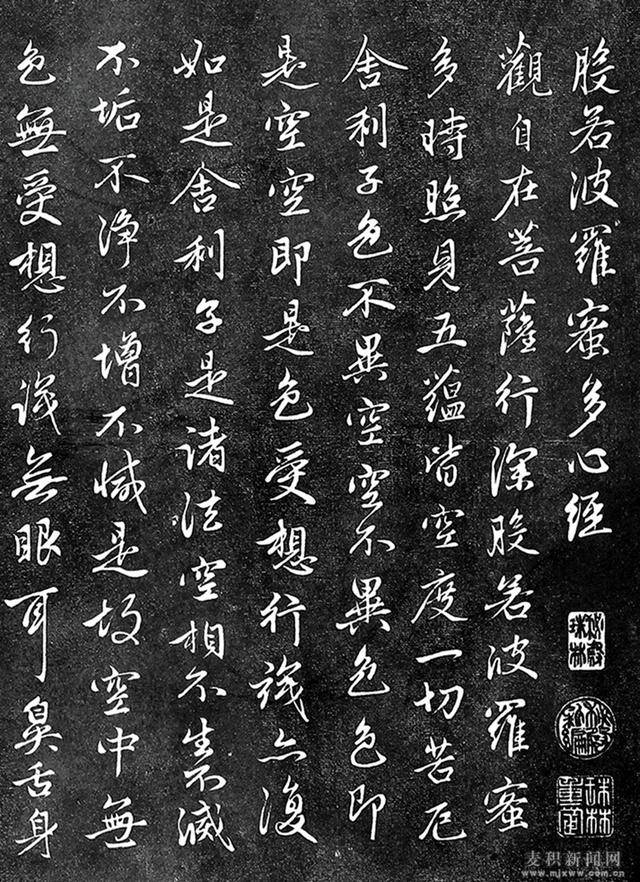 般若波羅蜜多心經
觀自在菩薩行深般若波羅蜜
多時照見五蘊皆空度一切苦厄
舍利子色不異空空不異色色即
是空空即是色受想行識亦復
如是舍利子是諸法空相不生不滅
不垢不淨不增不減是故空中無
色無受想行識無眼耳鼻舌身
秘殿珠林
珠林重定
麦积新闻网
www.mjxww.com.cn